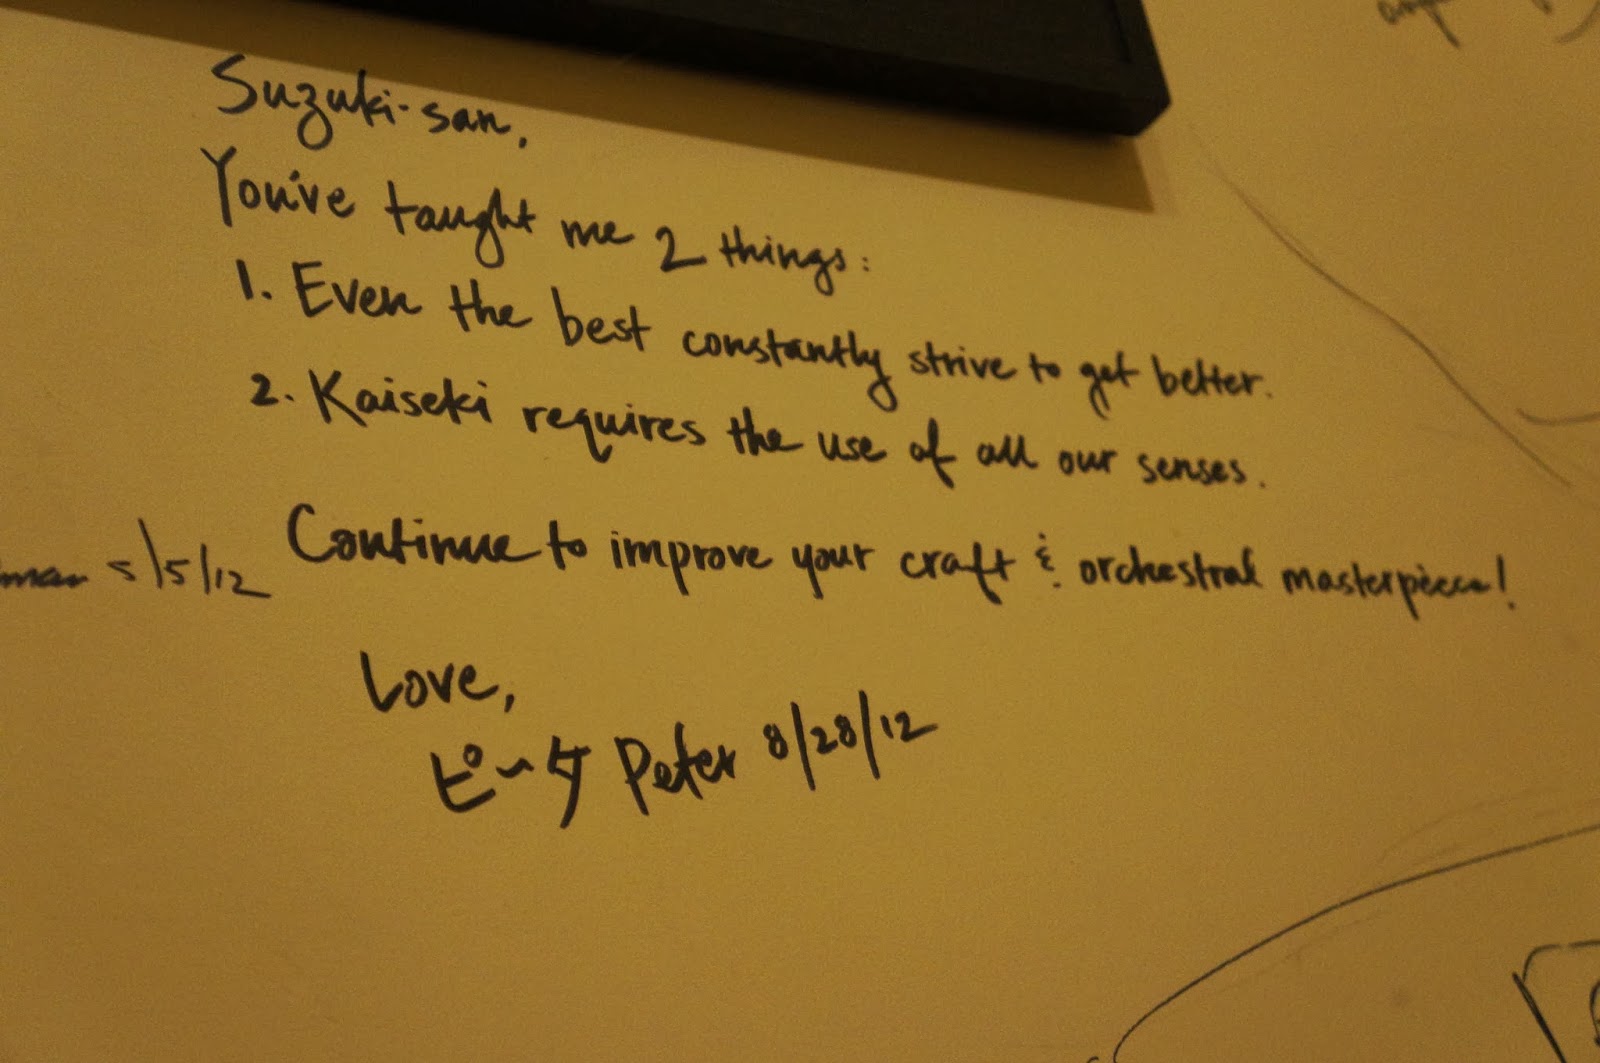 Suzuki-san,
You've taught me 2 things:
1. Even the best constantly strive to get better.
2. Kaiseki requires the use of all our senses.
Continue to improve your craft & orchestral masterpieces!
5/5/12
Love,
ピータ Peter 8/28/12